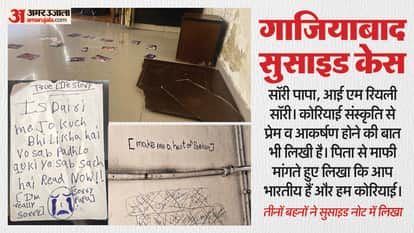 अमर उजाला
amarujala.com
गाजियाबाद
सुसाइड केस
सॉरी पापा, आई एम रियली
सॉरी। कोरियाई संस्कृति से
प्रेम व आकर्षण होने की बात
भी लिखी है। पिता से माफी
मांगते हुए लिखा कि आप
भारतीय हैं और हम कोरियाई।
तीनों बहनों ने सुसाइड नोट में लिखा
True
Is Dairi
me Jo kuch
Bhi Likha hai
Vo sab Padhlo
vo sab sach
hai Read Now!!
I'm
really
sorry
Sorry
Papa
make me a